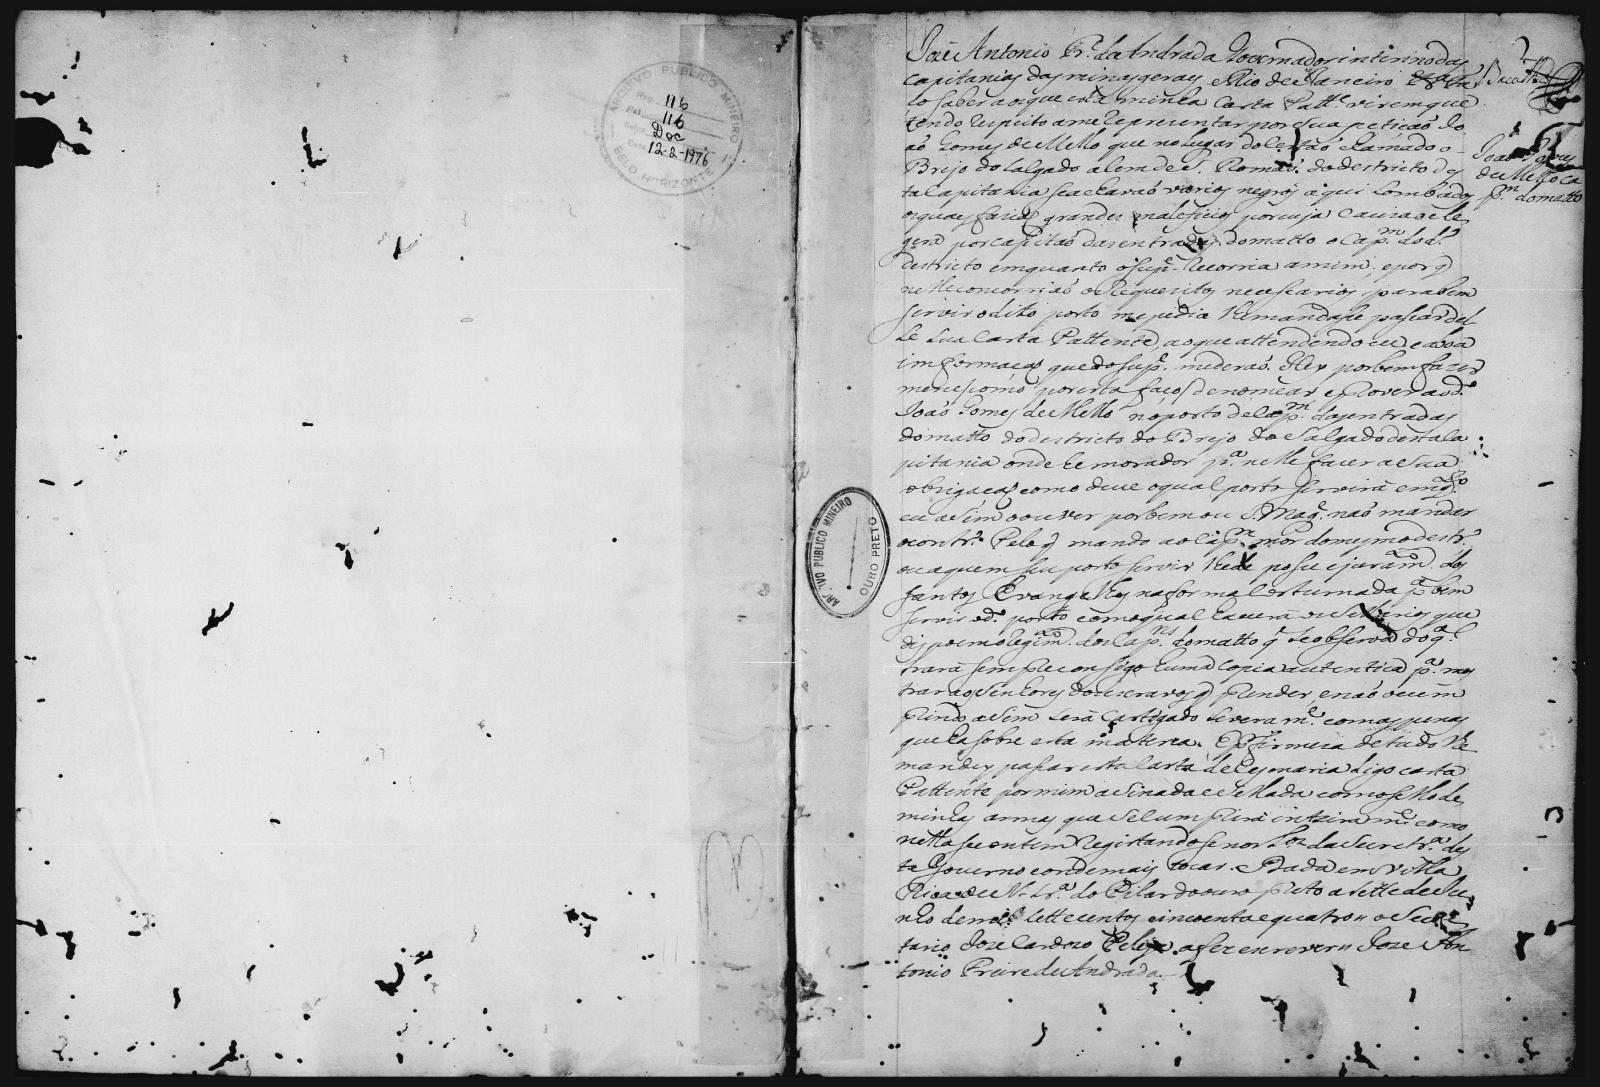 ARQUIVO PUBLICO MINEIRO
116
116
Doc
12-2-1976
BELO HORIZONTE
ARQUIVO PUBLICO MINEIRO
OURO PRETO
Joze Antonio Fr.e de Andrada Governador interino das
capitanias das minas geraes e Rio de Janeiro
lo saber aos que esta minha Carta Patt.e virem que
tendo respeito a me reprezentar por sua petição Jo
aõ Gomes de Mello que no lugar do certaõ chamado o
Brejo do Salgado alem de S. Romaõ do destricto des
ta Capitania se achavaõ varios negros aquilombados
os quaes fazias grandes maleficios por cuja cauza o ele
gera por capitaõ das entradas do matto o Cap.m do d.o
destricto emquanto o sup.e recorria a mim, e por q
nelle concorriaõ os requezitos necessarios para bem
servir o dito posto me pedia lhe mandase pasar del
le sua Carta Pattente, ao que attendendo eu e a boa
imformacaõ que do sup.e me deraõ. Hey por bem fazer
merce como por esta faço de nomear e prover ao d.o
Joaõ Gomes de Mello no posto de Cap.m das entradas
do matto do destricto do Brejo do Salgado desta Ca
pitania onde he morador p.a nelle fazer a sua
obrigacaõ como deve o qual posto servirá emq.to
eu asim o ouver por bem ou S. Mag.e naõ mandar
o contr.o Pelo q mando ao Cap.m mor do mesmo destr.o
ou a quem seu posto servir lhe dê pose e juram.to dos
santos Evangelhos na forma costumada p.a bem
servir o d.o posto com o qual haverá os selarios que
dispoem o regim.to dos Cap.ns do matto q se observa do q.l
trará sempre consigo huma copia autentica p.a mos
trar aos senhores dos escravos q prender, e naõ o cum
prindo asim será castigado severam.te com as penas
que ha sobre esta materia. E p.a firmeza de tudo lhe
mandey pasar esta Carta de Cesmaria digo carta
Pattente por mim asinada e sellada com o sello de
minhas armas que se cumprirá inteiram.te como
nella se contem Registandose nos L.os da Secretr.a des
te Governo e onde mais tocar. Dada em Villa
Rica de N. Sr.a do Pilar do ouro preto a sette de Ju
nho de mil settecentos cincoenta e quatro // o Secre
tario Joze Cardozo Peleja a fez escrever // Joze An
tonio Freire de Andrada.
Joaõ Gomes
de Mello Ca
p.m do matto